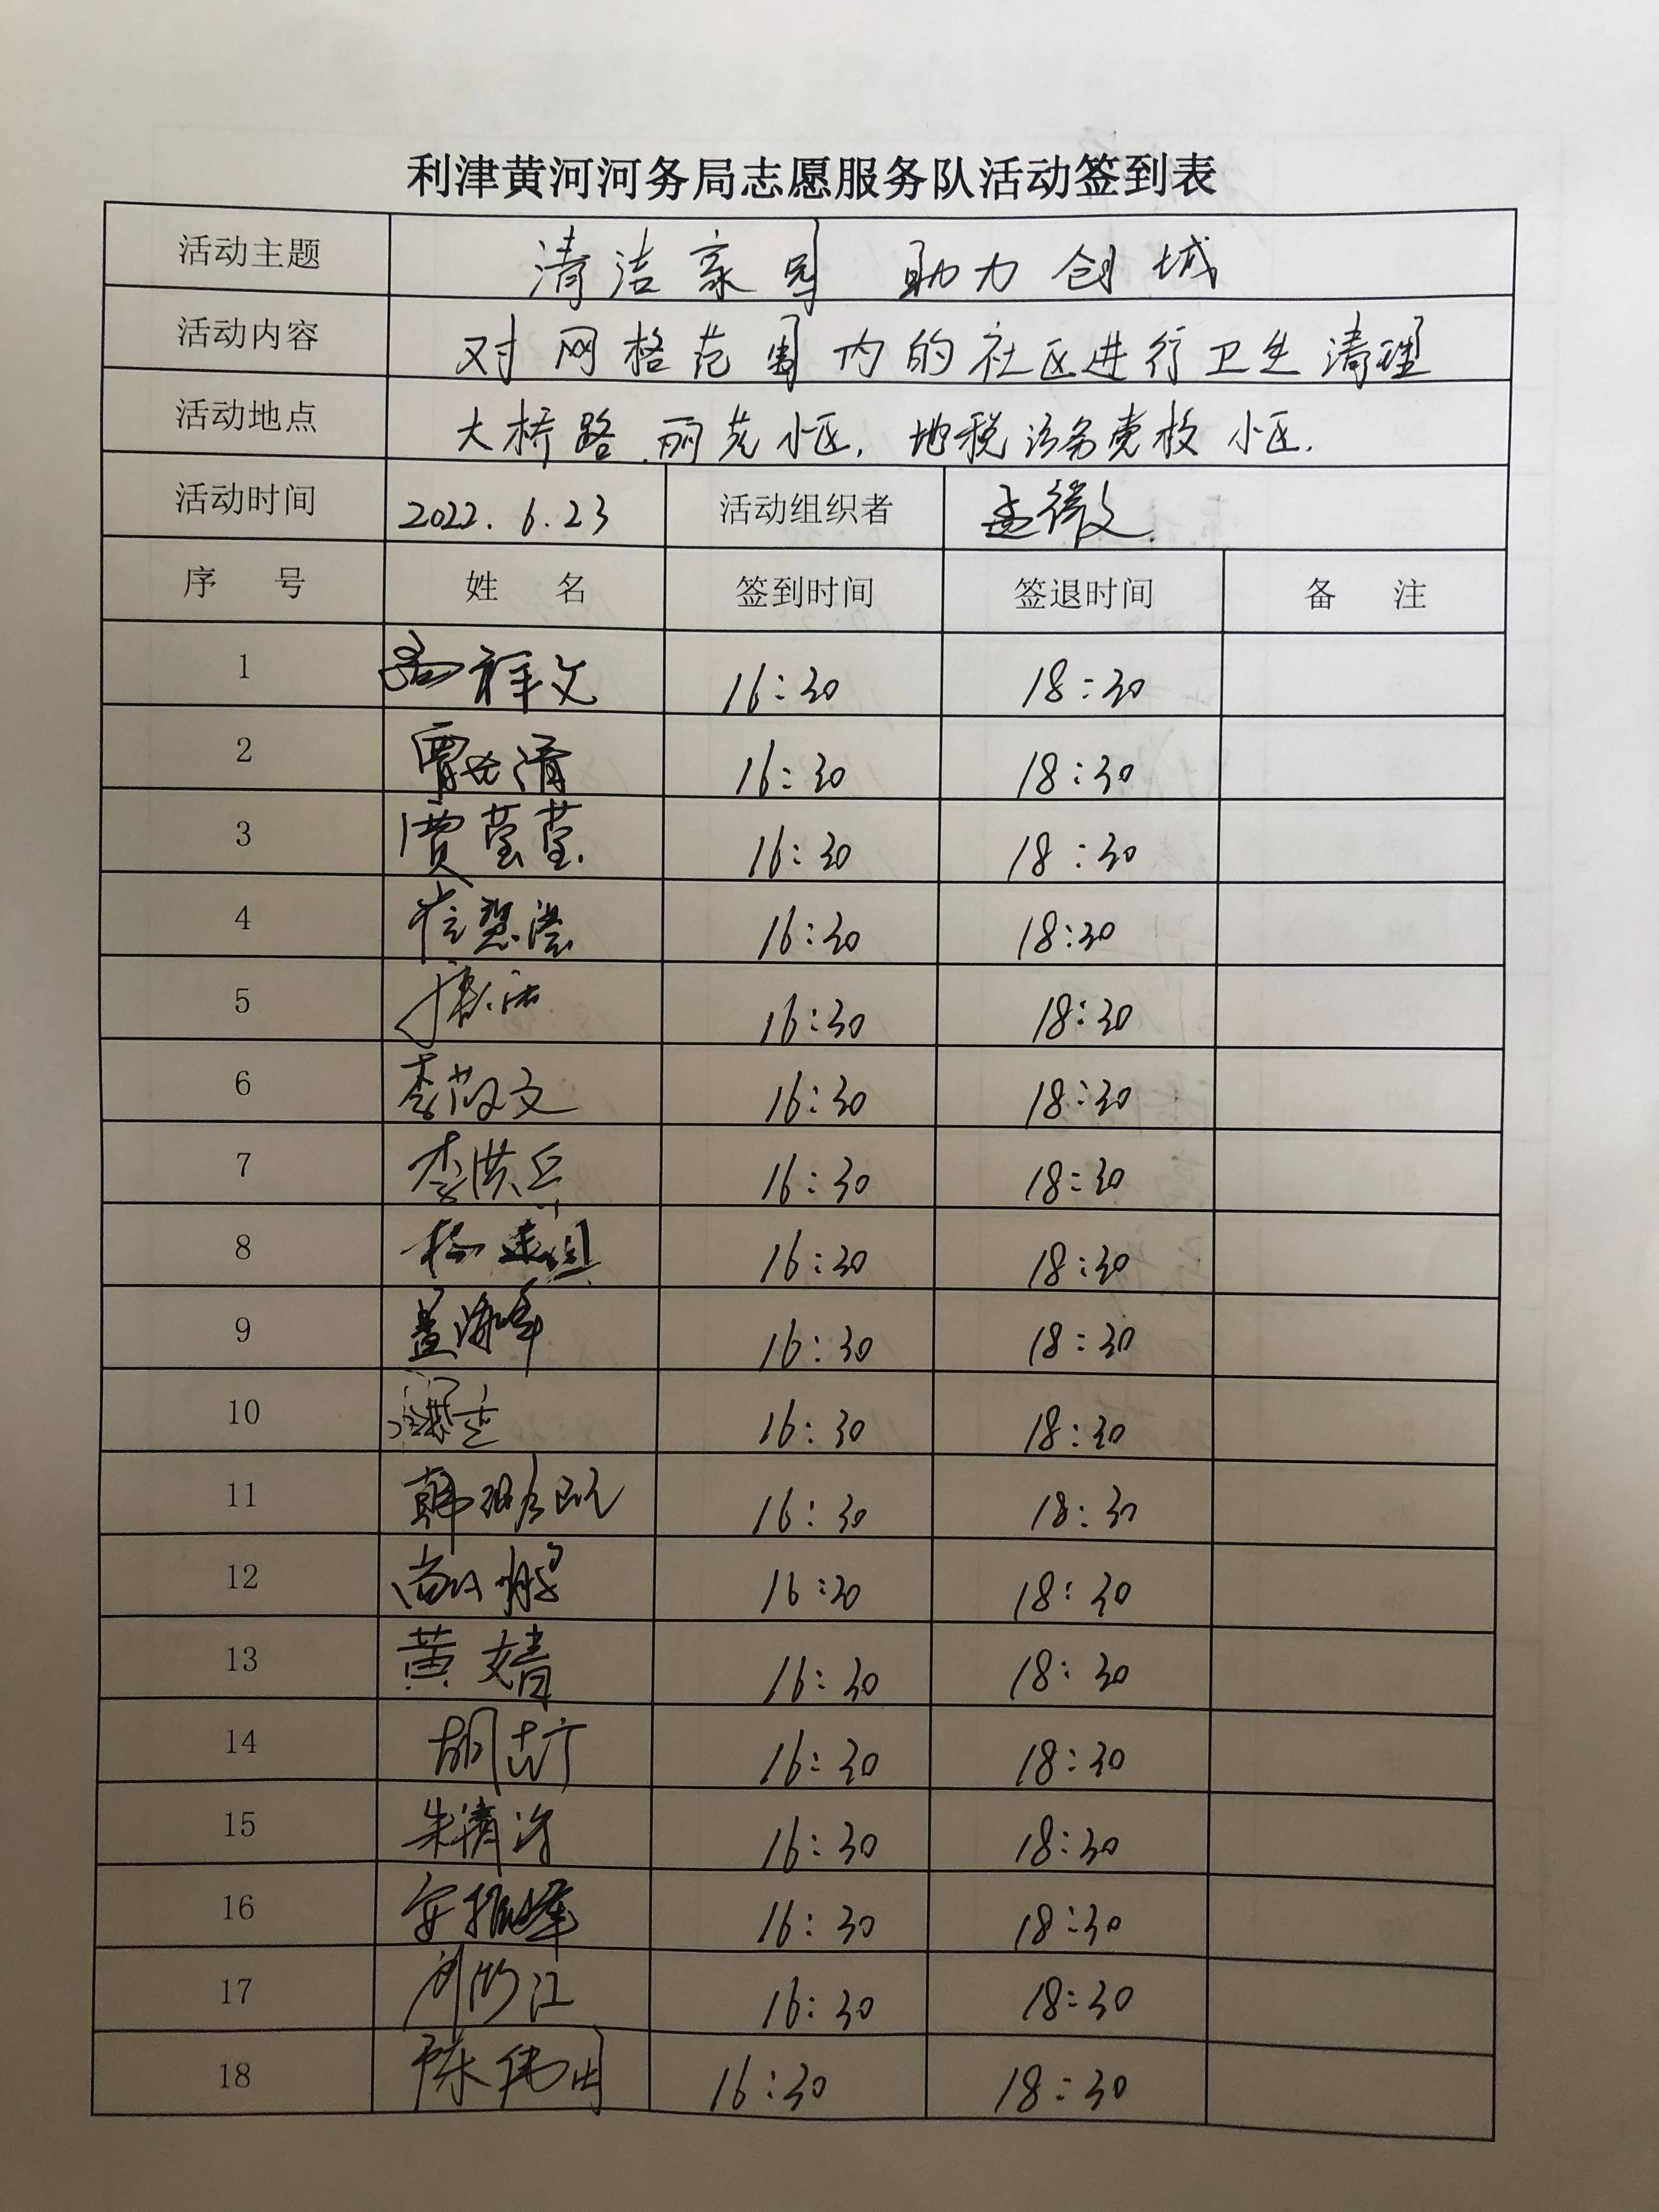 利津黄河河务局志愿服务队活动签到表
活动主题 清洁家园 助力创城
活动内容 对网格范围内的社区进行卫生清理
活动地点 大桥路.丽苑小区,地税法务党校小区.
活动时间 2022.6.23 活动组织者 孟
序 号 姓 名 签到时间 签退时间 备 注
1 祥文 16:30 18:30
2 清 16:30 18:30
3 贾莹莹 16:30 18:30
4 崔 16:30 18:30
5 16:30 18:30
6 李 文 16:30 18:30
7 李洪兵 16:30 18:30
8 杨建 16:30 18:30
9 盖海峰 16:30 18:30
10 16:30 18:30
11 韩 16:30 18:30
12 尚 16:30 18:30
13 黄婧 16:30 18:30
14 胡志 16:30 18:30
15 朱清 16:30 18:30
16 安振峰 16:30 18:30
17 江 16:30 18:30
18 陈伟 16:30 18:30